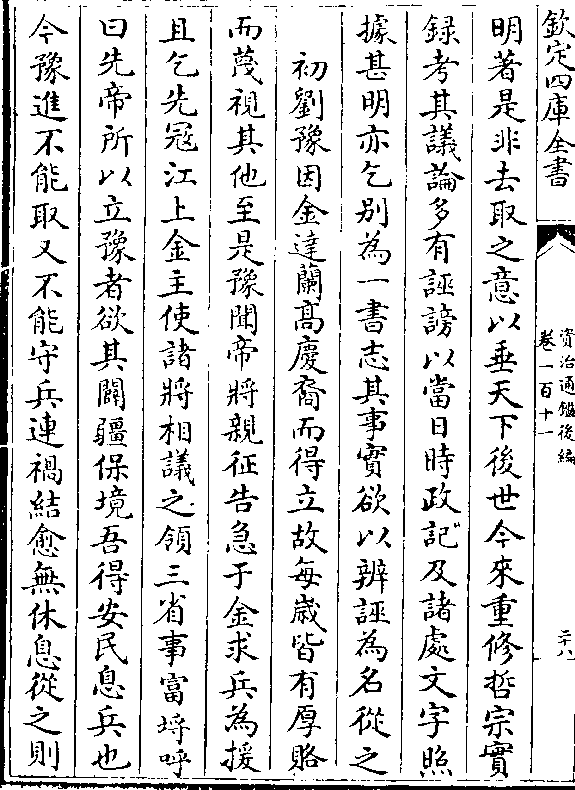 欽定四庫全書
資治通鑑後編
卷一百十一
二十八
明著是非去取之意以垂天下後世今來重修哲宗實
録考其議論多有誣謗以當日時政記及諸處文字照
據甚明亦乞别為一書志其事實欲以辨誣為名從之
初劉豫因金達蘭髙慶裔而得立故每歳皆有厚賂
而蔑視其他至是豫聞帝將親征告急于金求兵為援
且乞先冦江上金主使諸將相議之領三省事富埒呼
曰先帝所以立豫者欲其闢疆保境吾得安民息兵也
今豫進不能取又不能守兵連禍結愈無休息從之則